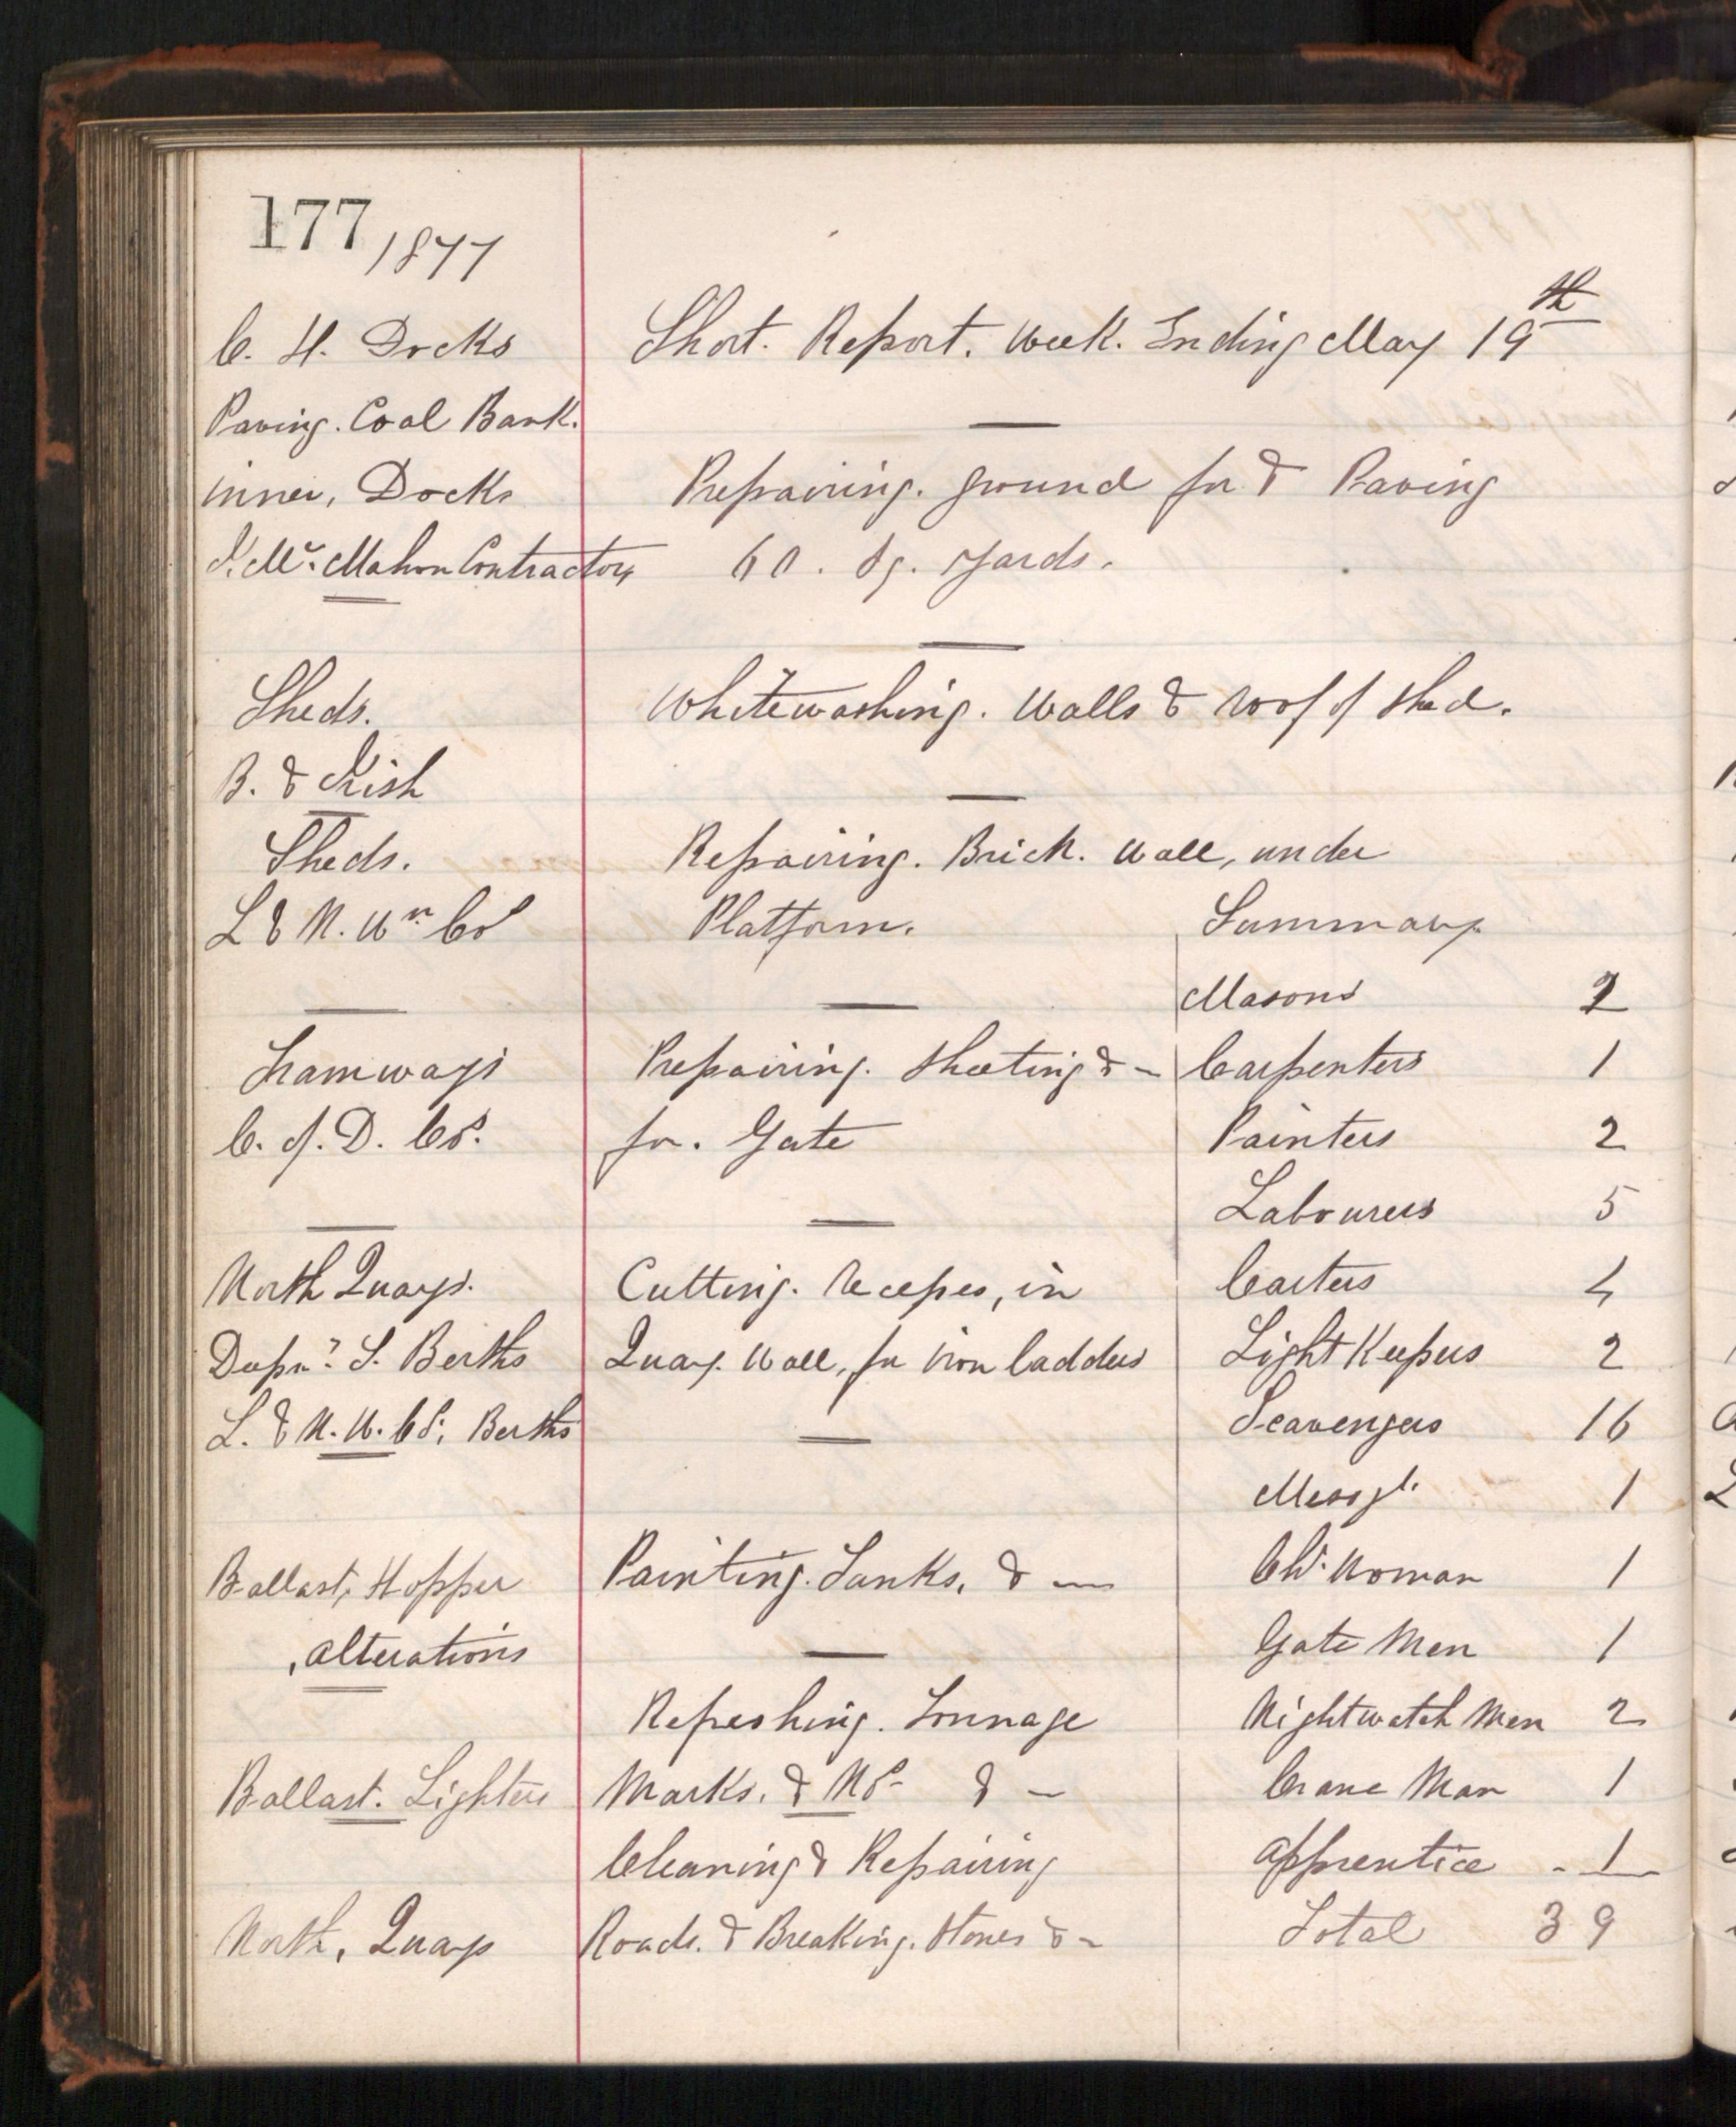 177 / 1877
C. H. Docks
Short. Report. Week. Ending May 19th
Paving. Coal Bank.
inner, Docks
Prepairing. ground for & Paving
J. Mc. Mahon Contractor
60. Sq. Yards.
Sheds.
Whitewashing. Walls & roof of Shed.
B. & Irish
Sheds.
Repairing. Brick. Wall, under
L & N. Wn Co
Platform.
Tramways
Prepairing. Sheeting & -
C. of. D. Co.
for. Gate
North Quays.
Cutting. Recesses, in
Deepn. S. Berths
Quay. Wall, for Iron ladders
L. & N. W. Co. Berths
Ballast, Hopper
Painting. Tanks. & -
, alterations
Refreshing. Tonnage
Ballast. Lighters
Marks. & No - & -
Cleaning & Repairing
North, Quays
Roads. & Breaking. Stones & -
Summary
Masons 2
Carpenters 1
Painters 2
Labourers 5
Carters 4
Light Keepers 2
Scavengers 16
Messgr. 1
Chr. Woman 1
Gate Men 1
Nightwatch Men 2
Crane Man 1
apprentice - 1
Total 39